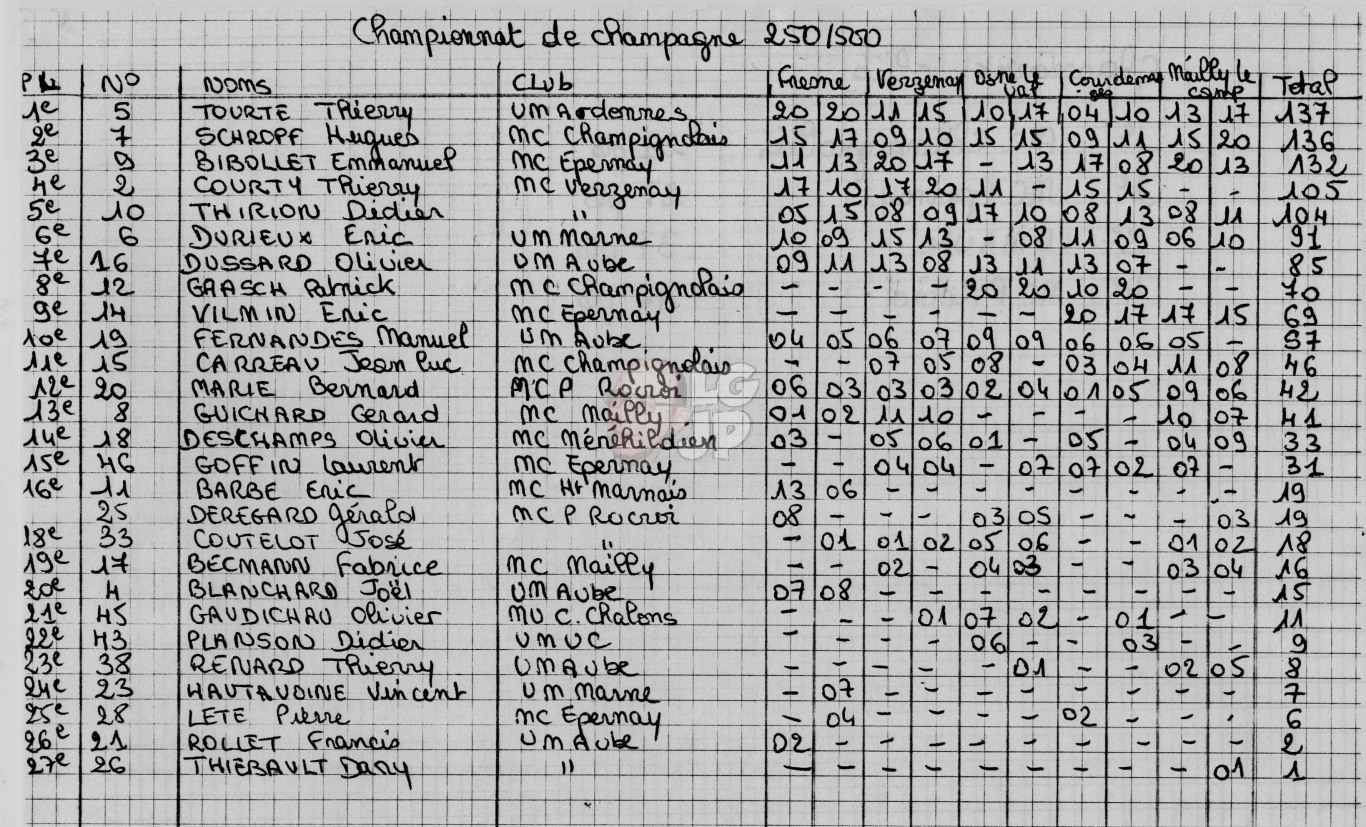 Championnat de champagne 250/500
Pl N° NOMS CLUB Fresne Verzenay Osne le val Courdemanges Mailly le camp Total
1e 5 TOURTE Thierry UM Ardennes 20 20 11 15 10 17 04 10 13 17 137
2e 7 SCHROPF Hugues MC Champignolais 15 17 09 10 15 15 09 11 15 20 136
3e 9 BIBOLLET Emmanuel MC Epernay 11 13 20 17 - 13 17 08 20 13 132
4e 2 COURTY Thierry MC Verzenay 17 10 17 20 11 - 15 15 - - 105
5e 10 THIRION Didier " 05 15 08 09 17 10 08 13 08 11 104
6e 6 DURIEUX Eric UM Marne 10 09 15 13 - 08 11 09 06 10 91
7e 16 DUSSARD Olivier UM Aube 09 11 13 08 13 11 13 07 - - 85
8e 12 GAASCH Patrick MC Champignolais - - - - 20 20 10 20 - - 70
9e 14 VILMIN Eric MC Epernay - - - - - - 20 17 17 15 69
10e 19 FERNANDES Manuel UM Aube 04 05 06 07 09 09 06 06 05 - 57
11e 15 CARREAU Jean luc MC Champignolais - - 07 05 08 - 03 04 11 08 46
12e 20 MARIE Bernard MC P Rocroi 06 03 03 03 02 04 01 05 09 06 42
13e 8 GUICHARD Gerard MC Mailly 01 02 11 10 - - - - 10 07 41
14e 18 DESCHAMPS Olivier MC Ménéhildien 03 - 05 06 01 - 05 - 04 09 33
15e 46 GOFFIN laurent MC Epernay - - 04 04 - 07 07 02 07 - 31
16e 11 BARBE Eric MC Ht Marnais 13 06 - - - - - - - - 19
25 DEREGARD Gérald MC P Rocroi 08 - - - 03 05 - - - 03 19
18e 33 COUTELOT José " - 01 01 02 05 06 - - 01 02 18
19e 17 BECMANN Fabrice MC Mailly - - 02 - 04 03 - - 03 04 16
20e 4 BLANCHARD Joël UM Aube 07 08 - - - - - - - - 15
21e 45 GAUDICHAU Olivier MU C. Chalons - - - 01 07 02 - 01 - - 11
22e 43 PLANSON Didier UMUC - - - - 06 - - 03 - - 9
23e 38 RENARD Thierry UM Aube - - - - - 01 - - 02 05 8
24e 23 HAUTAVOINE Vincent UM Marne - 07 - - - - - - - - 7
25e 28 LETE Pierre MC Epernay - 04 - - - - 02 - - - 6
26e 21 ROLLET Francis UM Aube 02 - - - - - - - - - 2
27e 26 THIEBAULT Dany " - - - - - - - - - 01 1